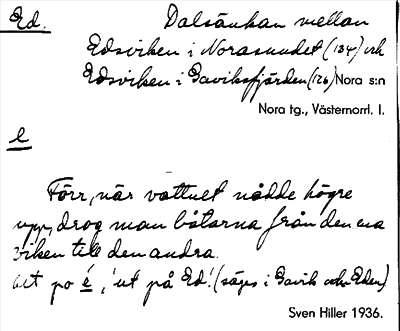 Ed. Dalsänkan mellan
Edsviken i Norasundet (134) och
Edsviken i Gaviksfjärden (126) Nora s:n
Nora tg., Västernorrl. l.
e
Förr, när vattnet nådde högre
upp, drog man båtarna från den ena
viken till den andra.
ut po é, 'ut på Ed'. (säges i Gavik och Eden)
Sven Hiller 1936.